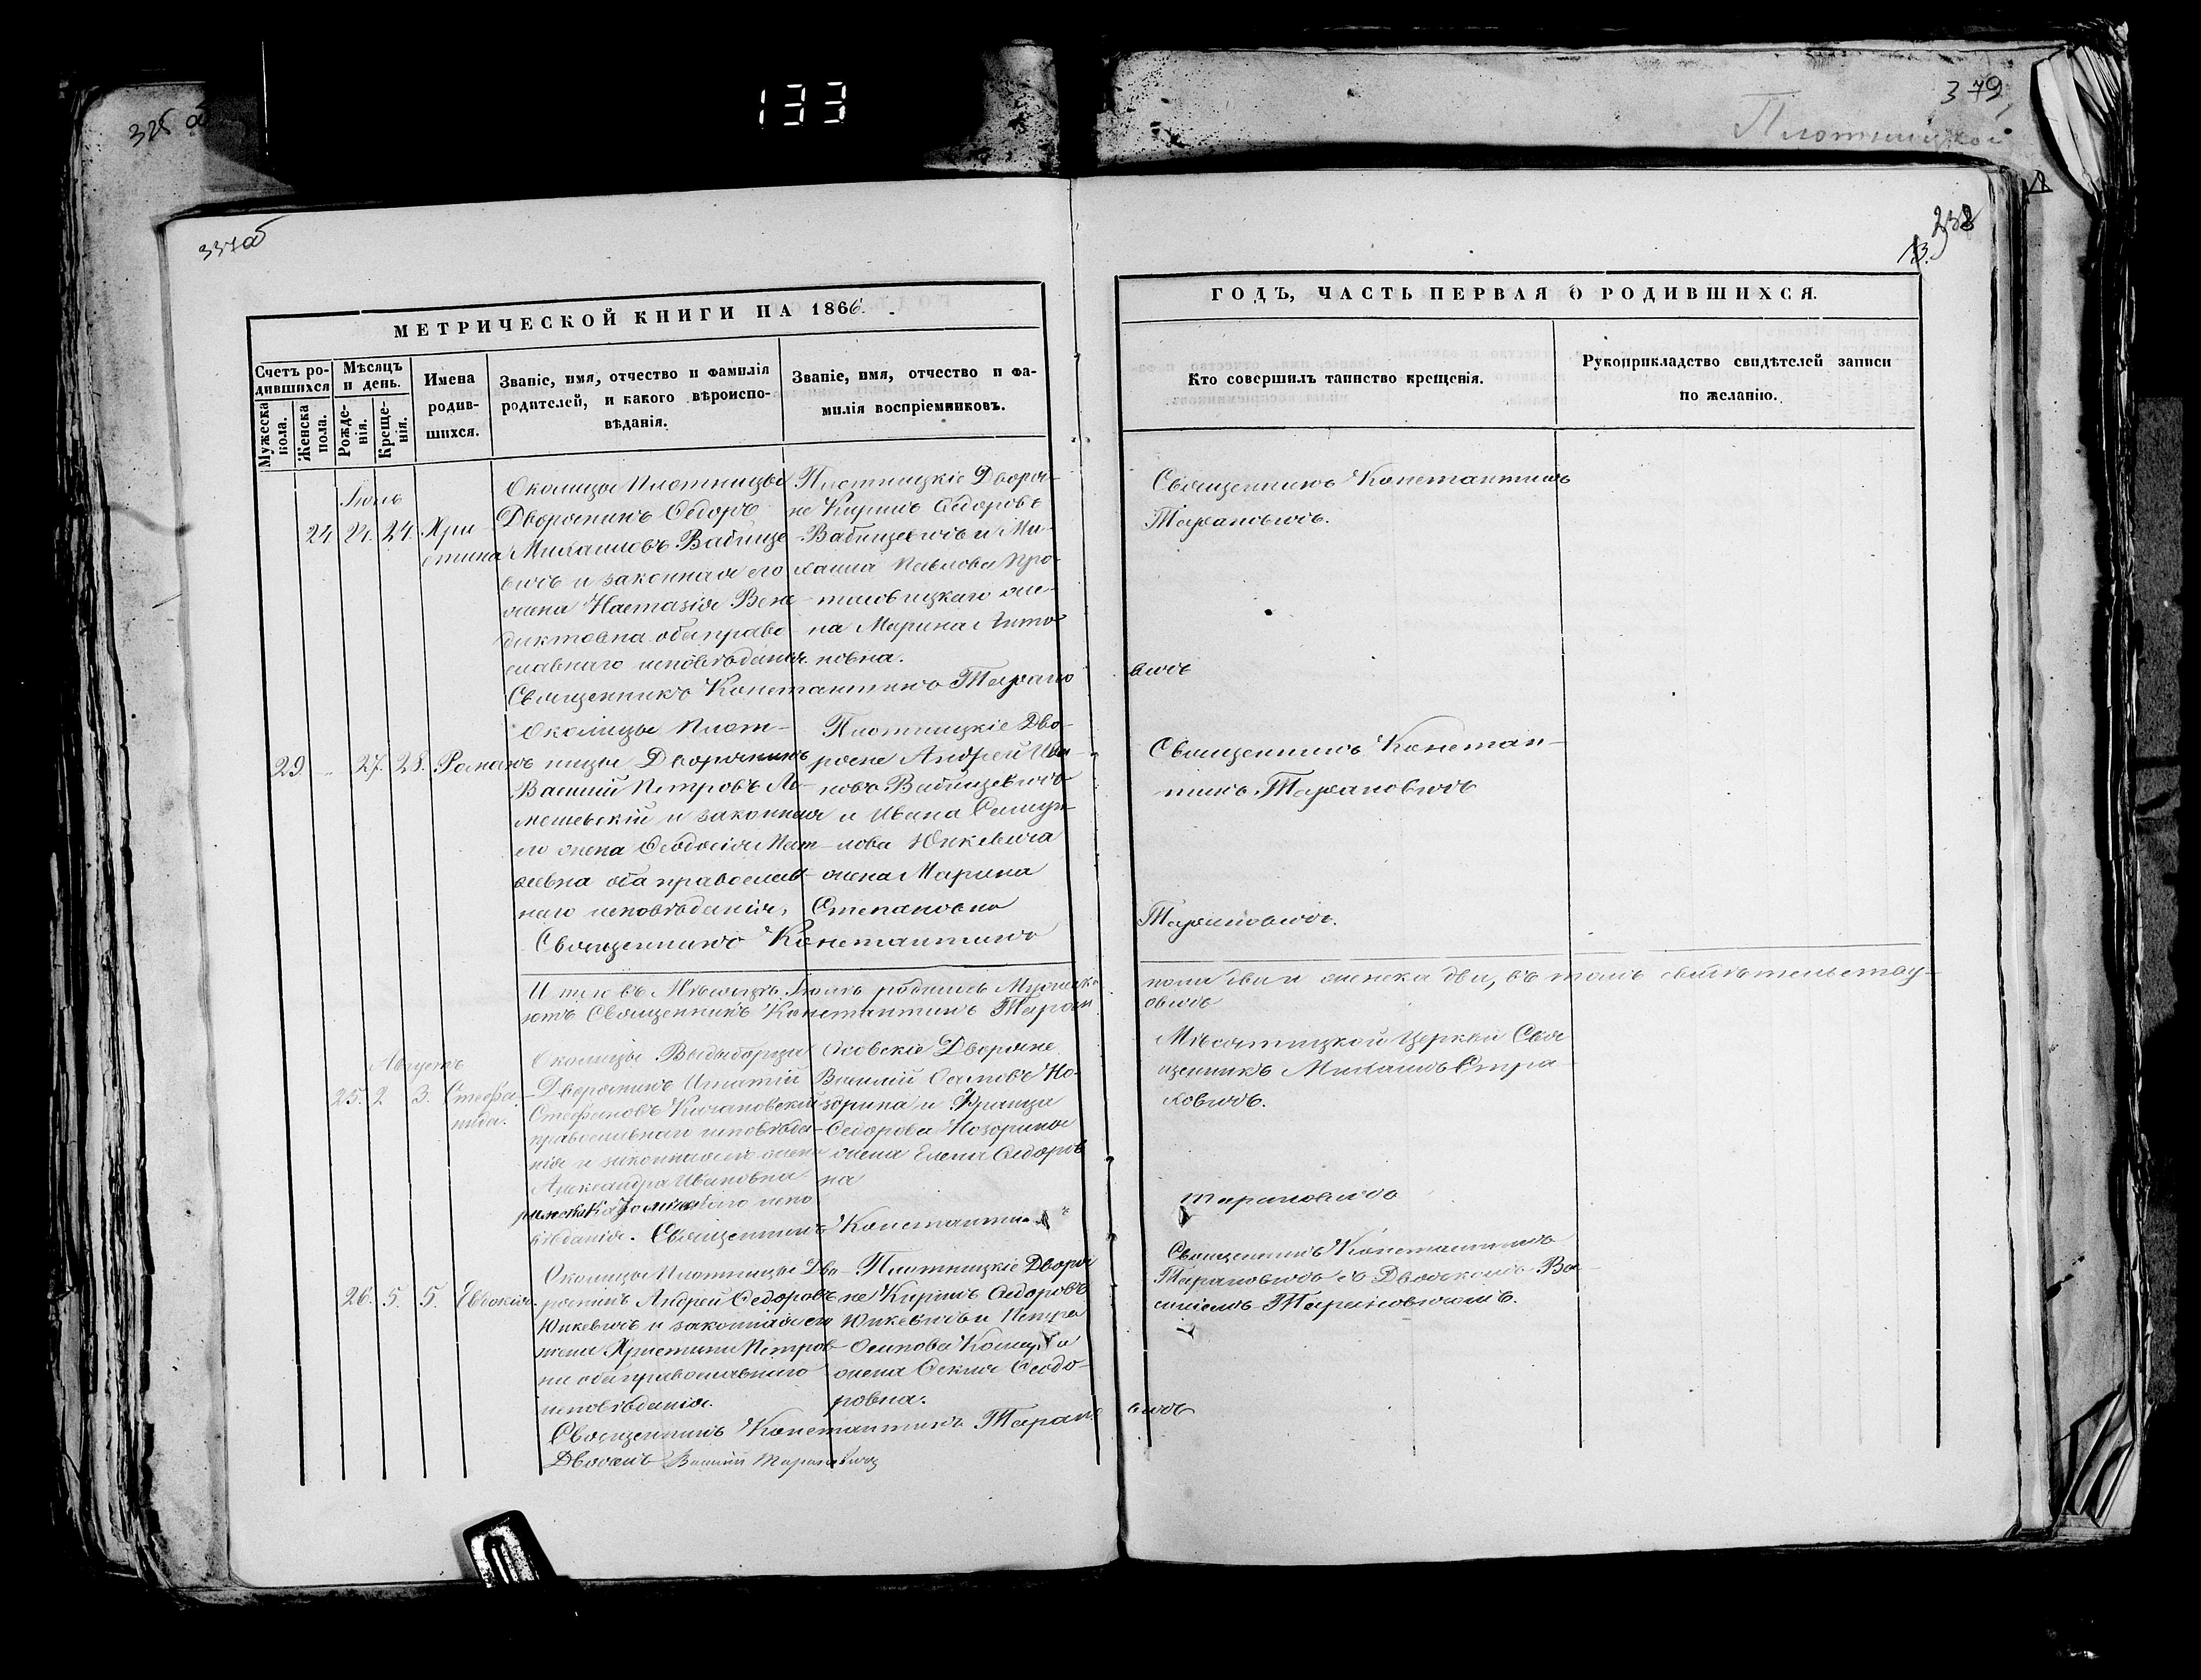 133
379
Плотницкой
337об
232
13.
МЕТРИЧЕСКОЙ КНИГИ НА 1866.
Счетъ ро-
дившихся
Мѣсяцъ
и день.
Мужеска
пола.
Женска
пола.
Рожде-
нія.
Креще-
нія.
Имена
родив-
шихся.
Званіе, имя, отчество и фамилія
родителей, и какого вѣроиспо-
вѣданія.
Званіе, имя, отчество и фа-
милія воспріемниковъ.
ГОДЪ, ЧАСТЬ ПЕРВАЯ О РОДИВШИХСЯ.
Кто совершилъ таинство крещенія.
Рукоприкладство свидѣтелей записи
по желанію.
Іюль
24 24. 24. Хри
стина
Околицы Плотницы
Дворянинъ Ѳедоръ
Михаиловъ Вабище
вичъ и законная его
жена Настазія Вене
диктовна оба право
славнаго исповѣданія.
Плотницкіе Дворя-
не Кирилъ Ѳедоровъ
Вабищевичъ и Ми-
хаила Павлова Про-
же-
на Марина Анто
новна.
Священникъ Константинъ
Тарановичъ.
Священникъ Константинъ Тарано
вичъ
29 " 27. 28. Романъ
Околицы Плот-
ницы Дворянинъ
Василій Петровъ Ло-
мешевскій и законная
его жена Ѳеодосія Мат-
ѳевна оба православ-
наго исповѣданія,
Плотницкіе Дво-
ряне Андрей Ива-
новъ Вабищевичъ
и Ивана Самуи-
лова Юшкевича
жена Марина
Степановна
Священникъ Констан-
тинъ Тарановичъ
Священникъ Константинъ
Тарановичъ.
Итого въ Мѣсяцѣ Іюлѣ родилось Мужеска
пола два и женска два, въ томъ свидѣтельству-
ютъ Священникъ Константинъ Таран
овичъ
Августъ
25. 2 3. Стефа-
нида.
Околицы Выдыборцы
Дворянинъ Игнатій
Стефановъ Качановскій
православнаго исповѣда-
нія и законная его жена
Александра Ивановна
римско Католическаго испо
вѣданія.
Осовскіе Дворяне
Василій Осиповъ Но-
зорина и Франца
Ѳедорова Нозорина
жена Елена Ѳедоров
на
Мѣсятицкой Церкви Свя
щенникъ Михаилъ Стра
ховичъ.
Священникъ Константинъ
Тарановичъ
26. 5. 5. Евдокія.
Околицы Плотницы Дво-
рянинъ Андрей Ѳедоровъ
Юшкевичъ и законная его
жена Христина Петров-
на оба православнаго
исповѣданія.
Плотницкіе Дворя
не Кирилъ Ѳедоровъ
Юшкевичъ и Петра
Осипова
жена Ѳекла Ѳеодо-
ровна.
Священникъ Константинъ
Тарановичъ съ Дьячкомъ Ва-
силіемъ Тарановичемъ.
Священникъ Константинъ Тарано
вичъ
Дьячекъ Василій Тарановичъ